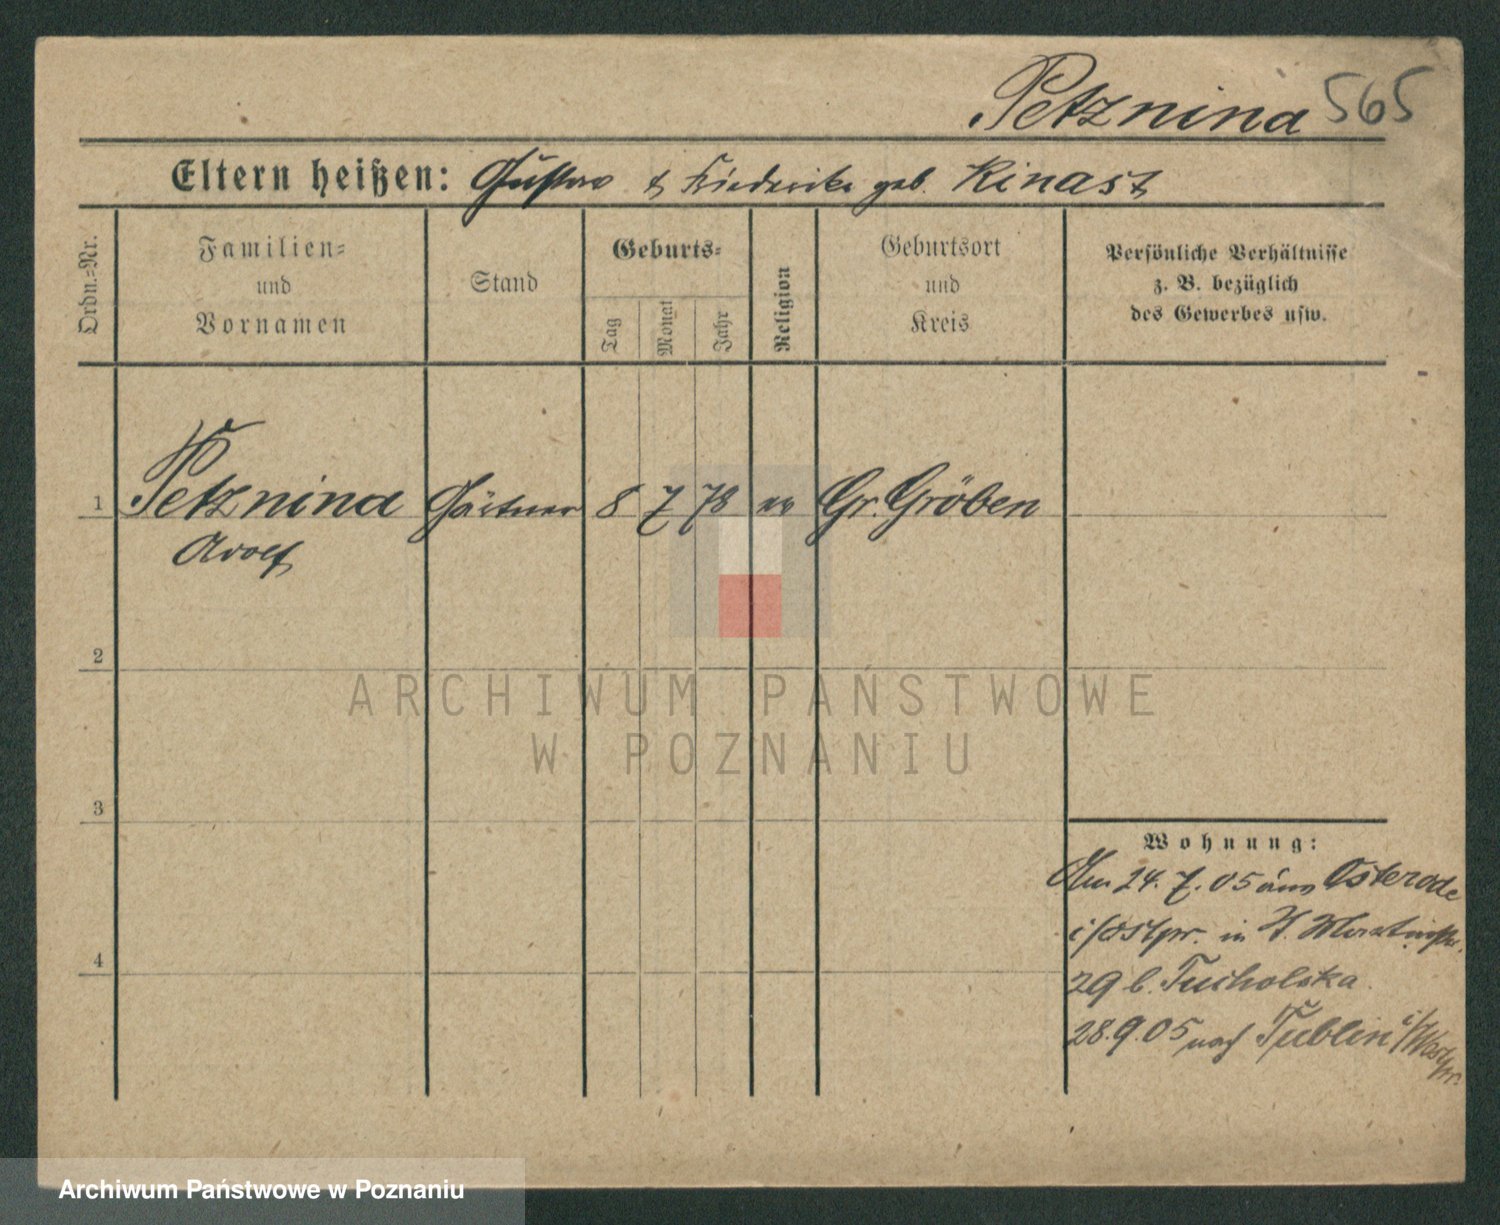 Petznina 565
Eltern heißen: Gustav & Friederike geb. Kinast
Ordn.-Nr.
Familien-
und
Vornamen
Stand
Geburts-
Tag
Monat
Jahr
Religion
Geburtsort
und
Kreis
Persönliche Verhältnisse
z. B. bezüglich
des Gewerbes usw.
1 Petznina Gärtner 8 7 78 ev Gr. Gröben
Adolf
2
3
4
ARCHIWUM PAŃSTWOWE
W POZNANIU
Wohnung:
Am 24. 7. 05 aus Osterode
i/Ostpr. in
29 b. Tucholska
28.9.05 nach Tublin i/Westpr.
Archiwum Państwowe w Poznaniu